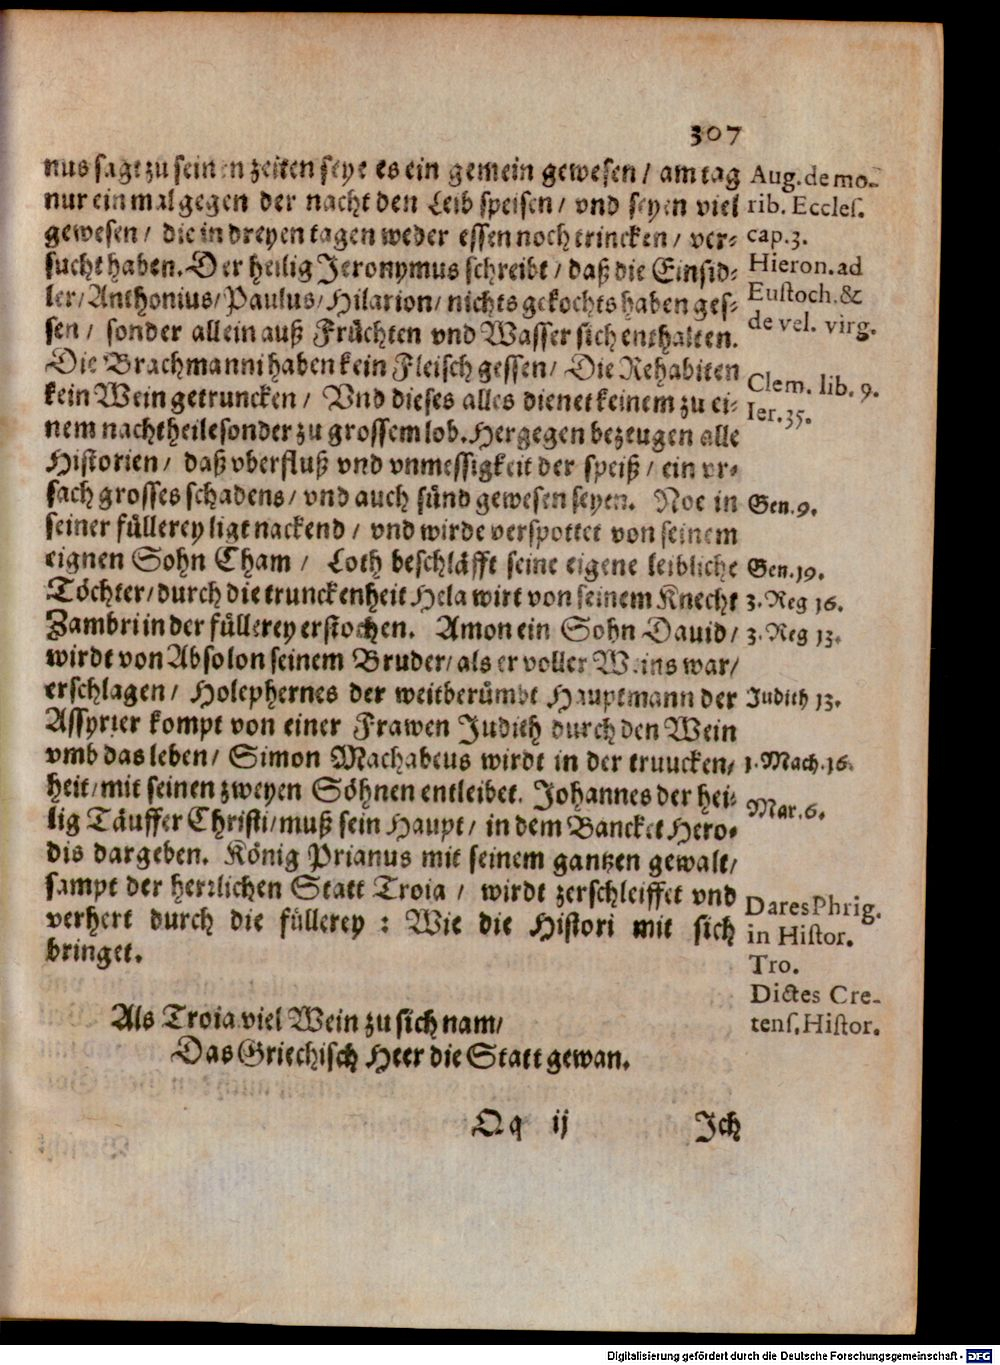 307
nus sagt zu seinen zeiten seye es ein gemein gewesen / am tag
nur ein mal gegen der nacht den Leib speisen / vnd seyen viel
gewesen / die in dreyen tagen weder essen noch trincken / ver-
sucht haben. Der heilig Jeronymus schreibt / daß die Einsid-
ler / Anthonius / Paulus / Hilarion / nichts gekochts haben ges-
sen / sonder allein auß Früchten vnd Wasser sich enthalten.
Die Brachmanni haben kein Fleisch gessen / Die Rehabiten
kein Wein getruncken / Vnd dieses alles dienet keinem zu ei-
nem nachtheil sonder zu grossem lob. Hergegen bezeugen alle
Historien / daß vberfluß vnd vnmessigkeit der speiß / ein vr-
sach grosses schadens / vnd auch sünd gewesen seyen. Noe in
seiner füllerey ligt nackend / vnd wirde verspottet von seinem
eignen Sohn Cham / Loth beschläfft seine eigene leibliche
Töchter / durch die trunckenheit Hela wirt von seinem Knecht
Zambri in der füllerey erstochen. Amon ein Sohn Dauid /
wirdt von Absolon seinem Bruder / als er voller Weins war /
erschlagen / Holephernes der weitberůmbt Hauptmann der
Assyrier kompt von einer Frawen Judith durch den Wein
vmb das leben / Simon Machabeus wirdt in der truucken-
heit / mit seinen zweyen Söhnen entleibet. Johannes der hei-
lig Täuffer Christi / muß sein Haupt / in dem Bancket Hero-
dis dargeben. König Prianus mit seinem gantzen gewalt /
sampt der herrlichen Statt Troia / wirdt zerschleiffet vnd
verhert durch die füllerey : Wie die Histori mit sich
bringet.
Als Troia viel Wein zu sich nam /
Das Griechisch Heer die Statt gewan.
Qq ij
Ich
Aug. de mo-
rib. Eccles.
cap. 3.
Hieron. ad
Eustoch. &
de vel. virg.
Clem. lib. 9.
Ier. 35.
Gen. 9.
Gen. 19.
3. Reg 16.
3. Reg 13.
Judith 13.
1. Mach. 16.
Mar. 6.
Dares Phrig.
in Histor.
Tro.
Dictes Cre-
tens. Histor.
Digitalisierung gefördert durch die Deutsche Forschungsgemeinschaft - DFG